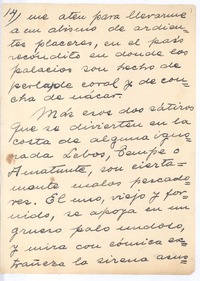 14)
me aten para llevarme
a un abismo de ardien-
tes placeres, en el país
recóndito en donde los
palacios son hecho de
perlado coral y de con-
cha de nácar.
Mas esos dos sátiros
que se divierten en la
costa de alguna igno-
rada Lesbos, Tempe o
Amatunte, son cierta-
mente malos pescado-
res. El uno, viejo y for-
nido, se apoya en un
grueso palo nudoso,
y mira con cómica ex-
trañeza la sirena asus-